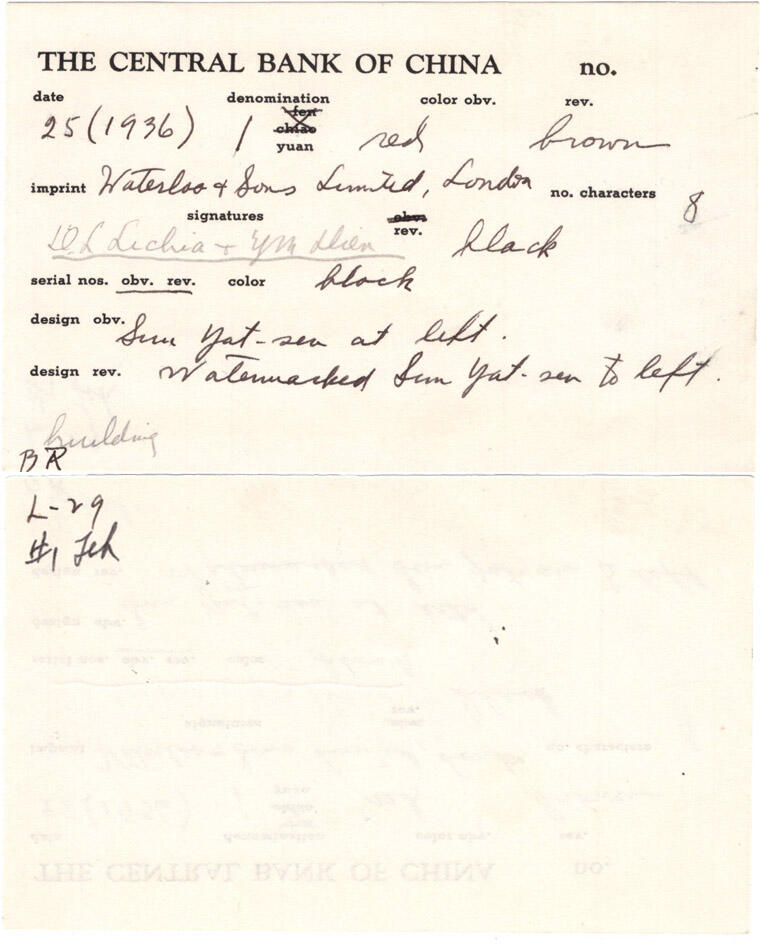 THE CENTRAL BANK OF CHINA no.
date denomination color obv. rev.
fen
25 (1936) 1 chiao red brown
yuan
imprint Waterloo & Sons Limited, London no. characters 8
signatures obv.
rev.
& black
serial nos. obv. rev. color black
design obv. Sun Yat-sen at left.
design rev. Watermarked Sun Yat-sen to left.
building
BR
L-29
#1